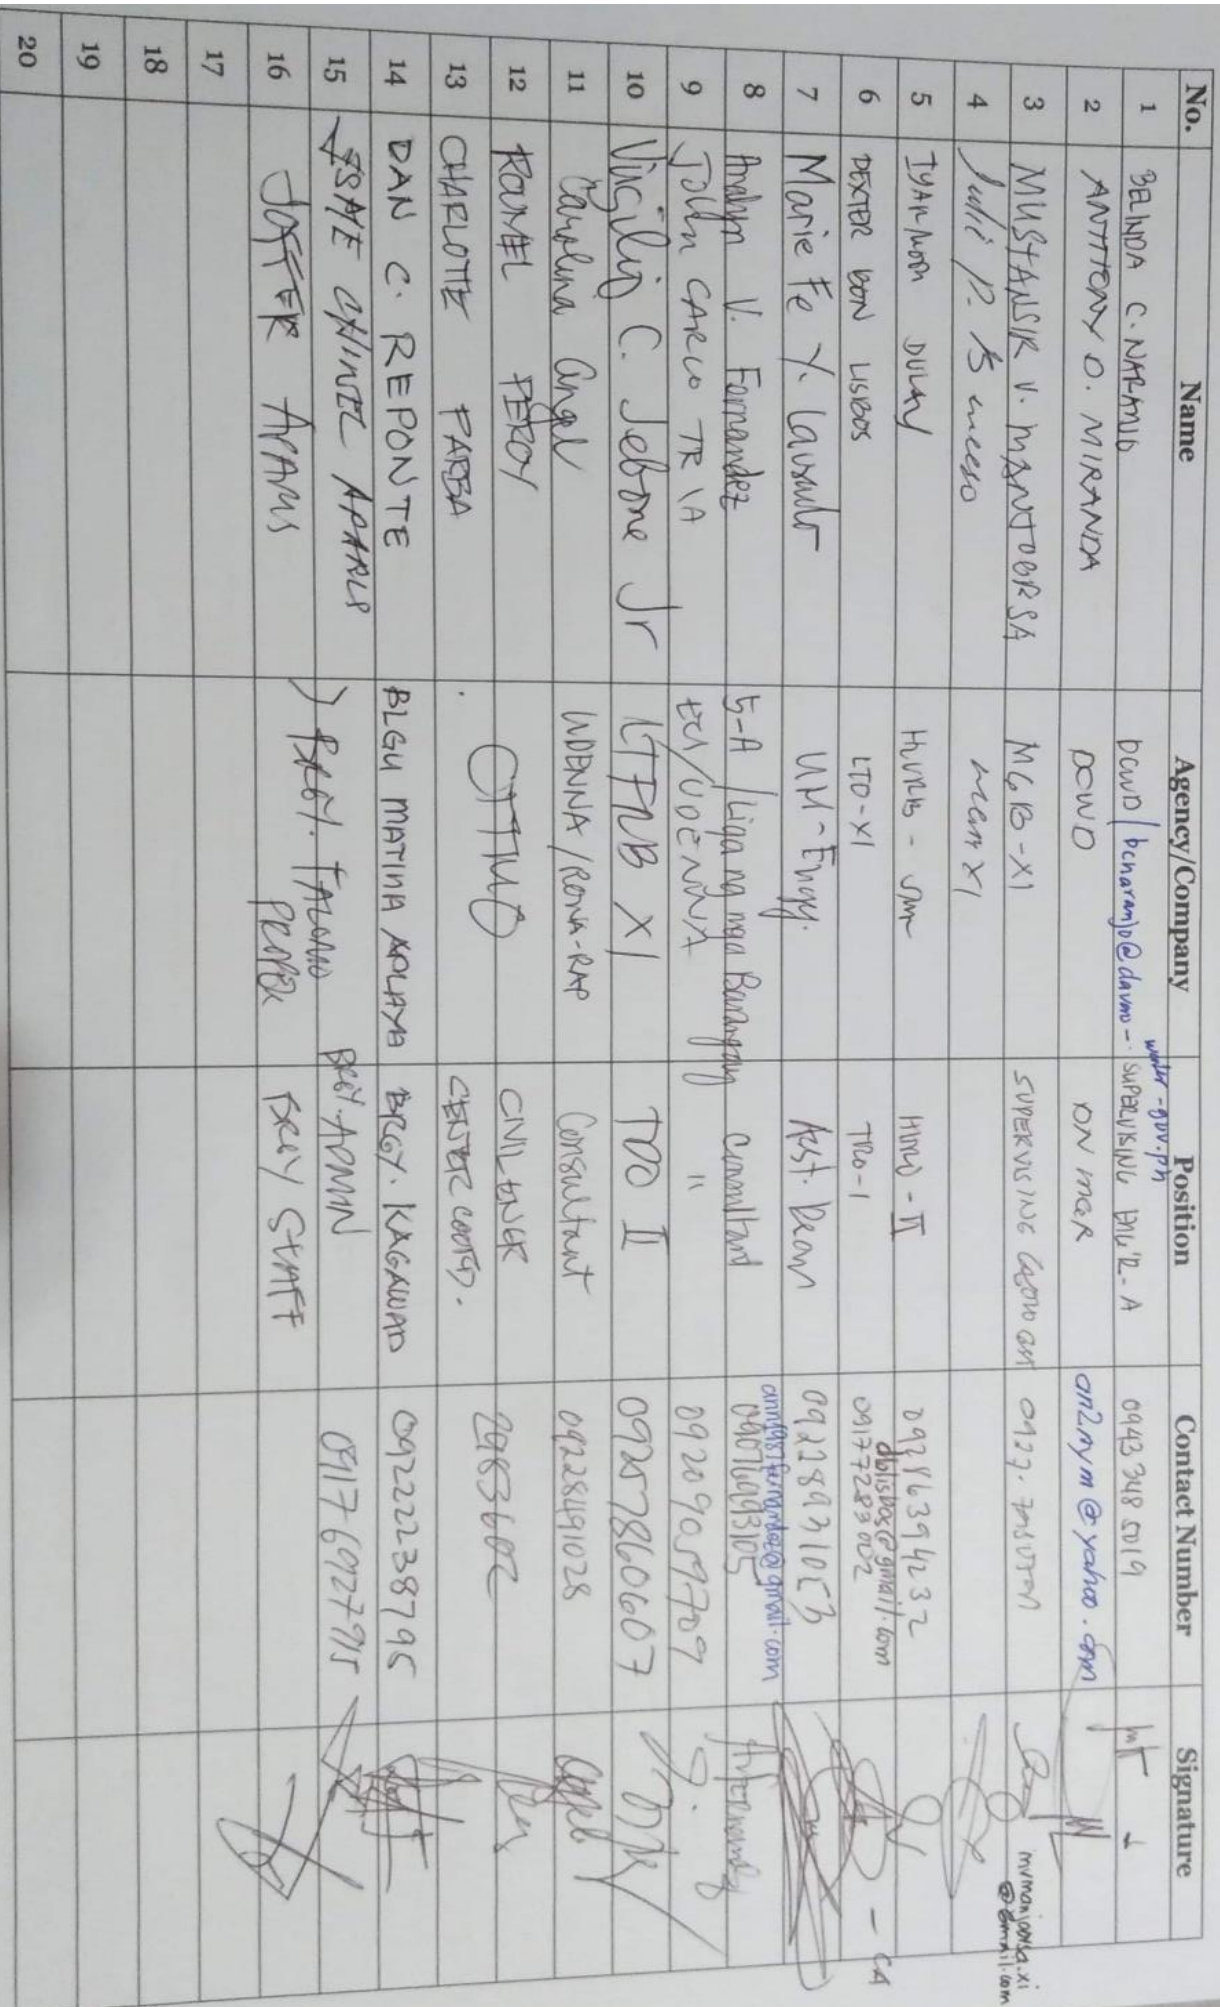 No. Name Agency/Company Position Contact Number Signature
1 BELINDA C. NARANJO DCWD / bcnaranjo@davao-water-gov.ph SUPERVISING ENG'R-A 0943 348 5019
2 ANTHONY O. MIRANDA DCWD DN MGR an2nym@yahoo.com
3 MUSTANSIR V. MANJOORSA MGB-XI SUPERVISING 0922.
4 P.
5 DULAY 09286394232
6 DEXTER BON LISBOS LTO-XI TRO-1 dblisbos@gmail.com 09177283002 - CA
7 Marie Fe Y. UM-Engg. Asst. Dean
8 Analyn V. Fernandez 5-A / Liga ng mga Barangay Consultant annj987fernandez@gmail.com
9 John CARLO TRIA /UDENNA " 09209059709
10 Virgilio C. Jebone Jr LTFRB XI TDO II 09257860607
11 Carolina Angel UDENNA / ROWA-RAP Consultant 09228491028
12 ROMEL PEROY CTTMO CIVIL ENGR 2983602
13 CHARLOTTE PARBA CENTER COORD.
14 DAN C. REPONTE BLGU MATINA APLAYA BRGY. KAGAWAD 09222238795
15 APARIS } BRGY. TALOMO PROPER BRGY. ADMIN 09176927915
16 JAFFER BRGY STAFF
17
18
19
20